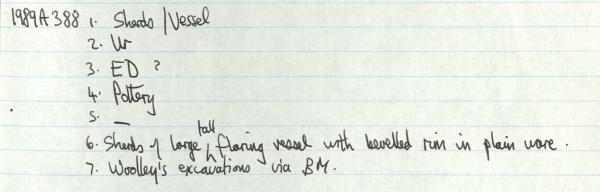 1989A388 1. Sherds / Vessel
2. Ur
3. ED ?
4. Pottery
5. —
6. Sherds of large tall flaring vessel with bevelled rim in plain ware.
7. Woolley's excavations via BM.